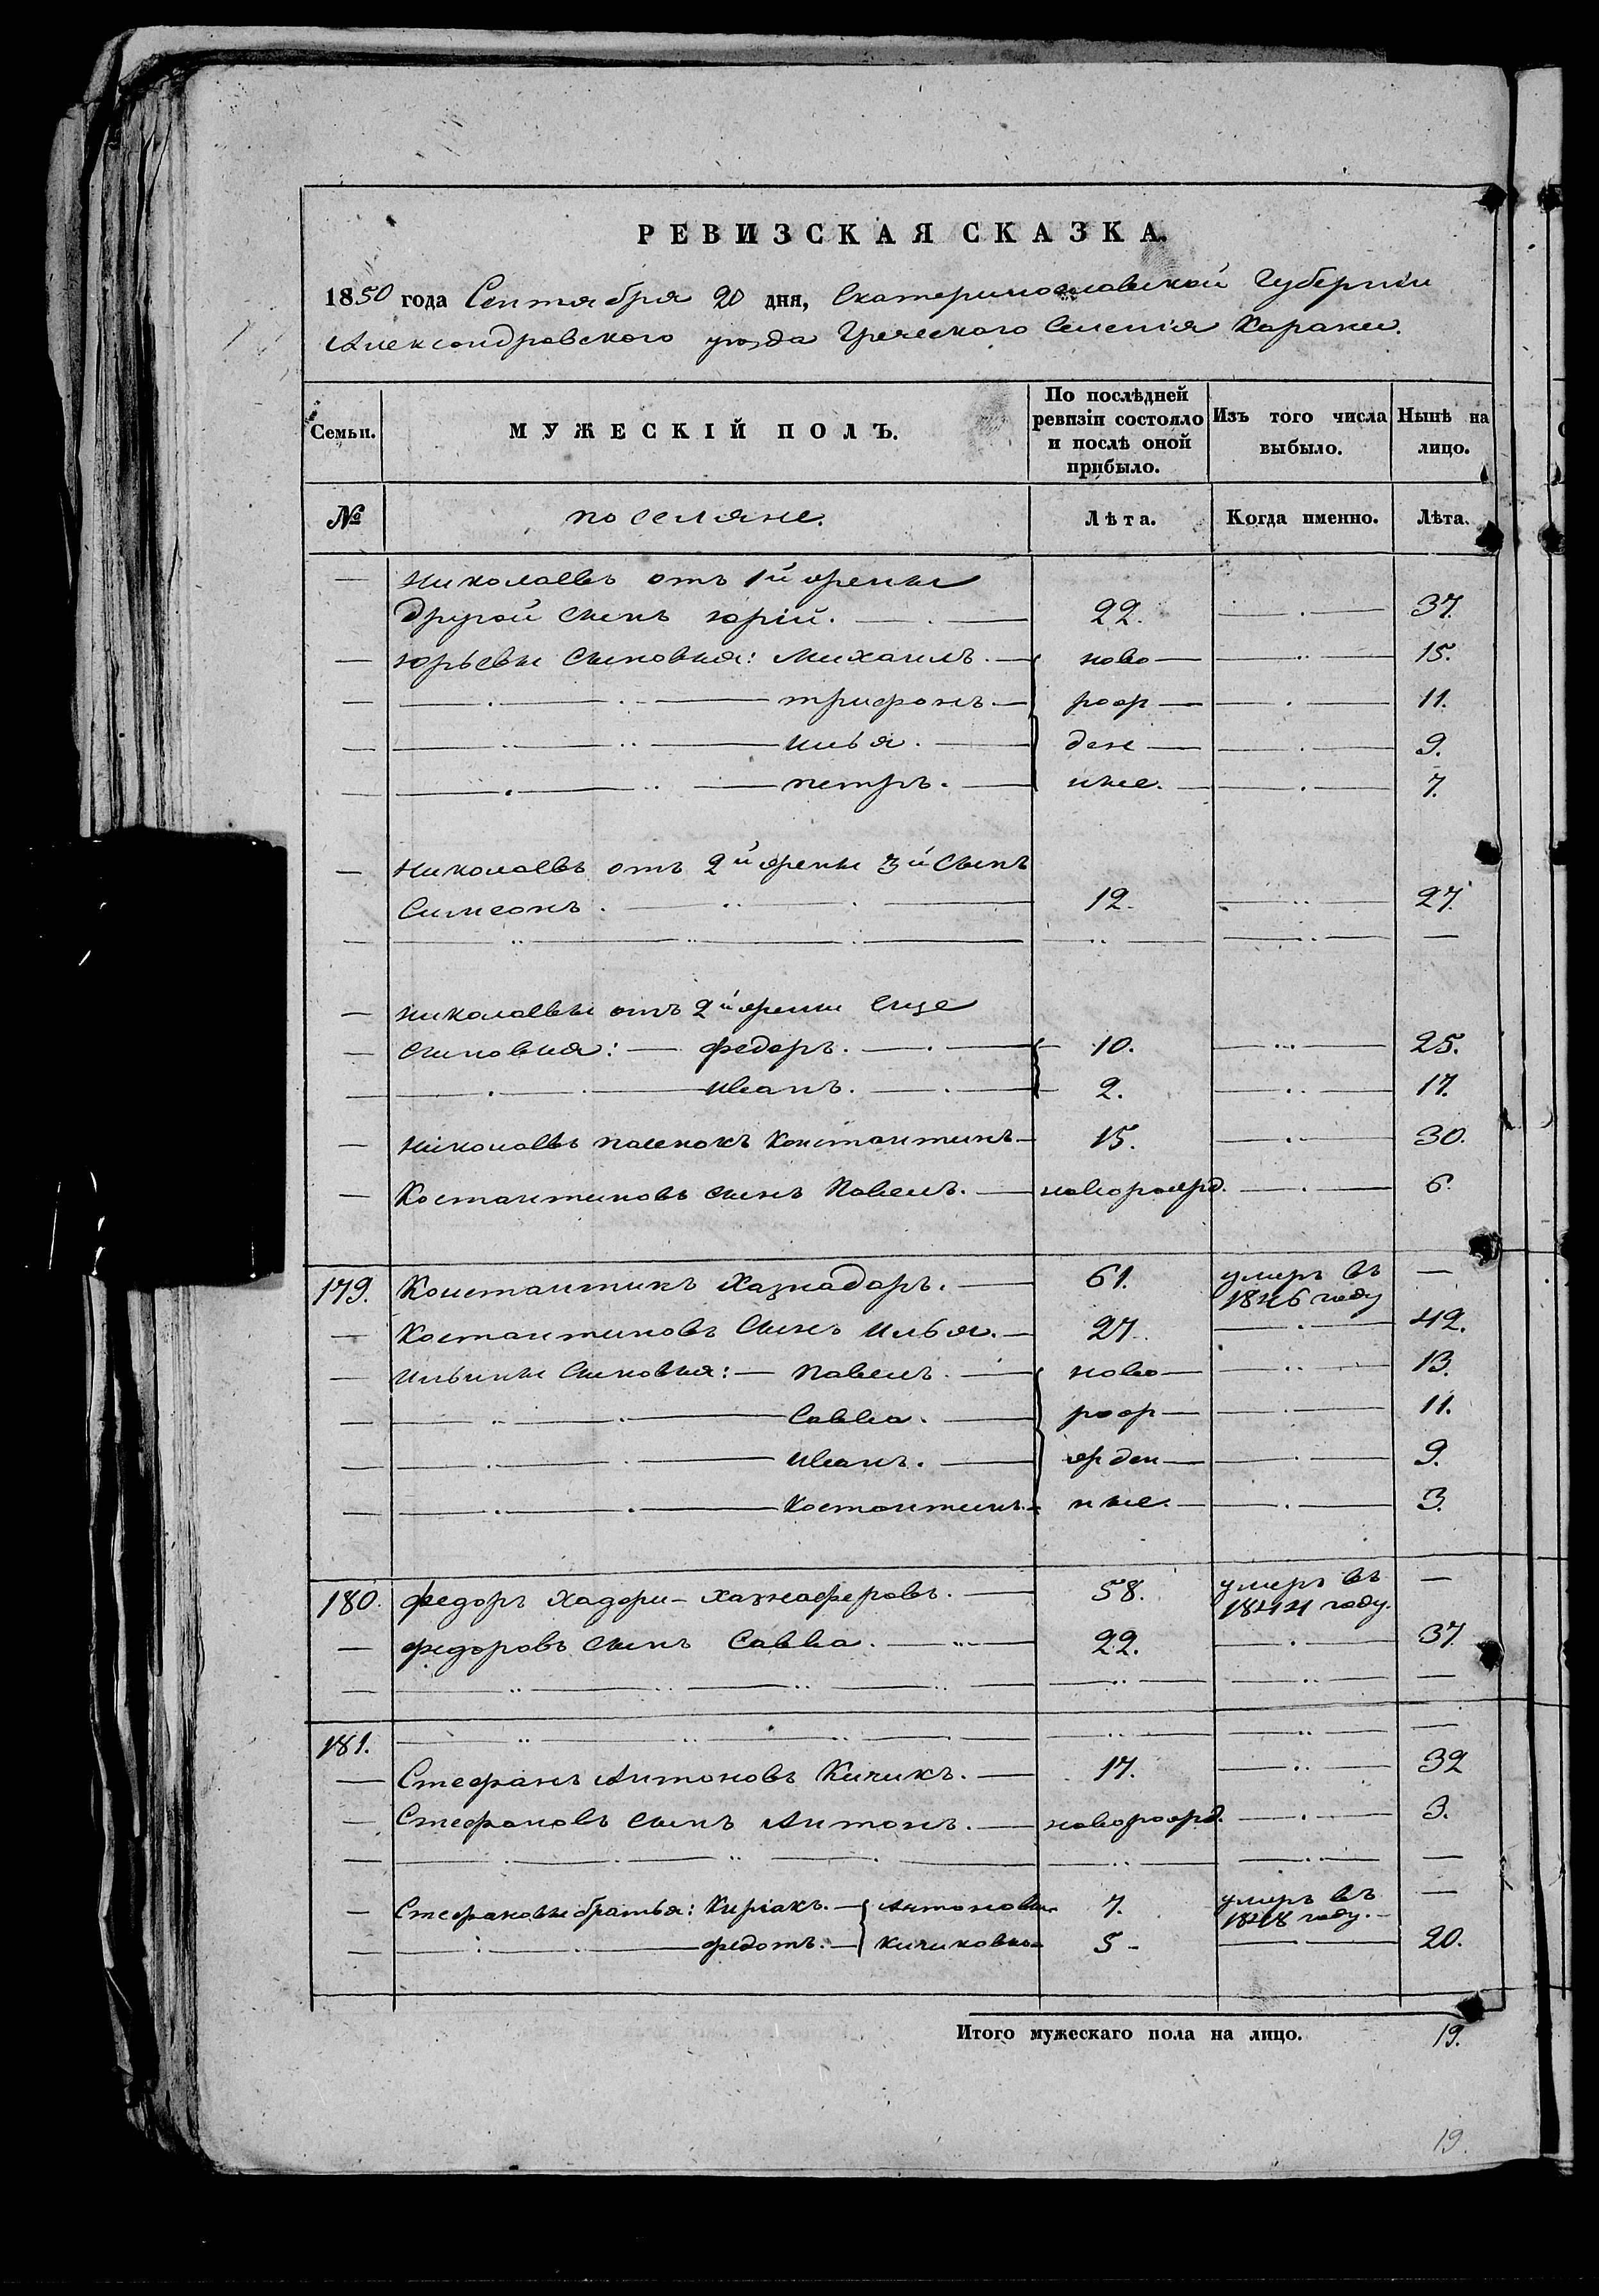 РЕВИЗСКАЯ СКАЗКА.
1850 года Сентября 20 дня, Екатеринославской Губернiи
Александровского уезда Греческого Селенiя Карани.
Семьи. МУЖЕСКIЙ ПОЛЪ. По послѣдней ревизiи состояло и послѣ оной прибыло. Изъ того числа выбыло. Нынѣ на лицо.
№ поселяне. Лѣта. Когда именно. Лѣта.
— Николаевъ отъ 1й жены
другой сынъ Юрiй. — 22. — 37.
— Юрьевы сыновья: Михаилъ. — ново — 15.
— Трифонъ. — рож — 11.
— Илья. — ден — 9.
— Петръ. — ные. — 7.
— Николаевъ отъ 2й жены 3й сынъ
Симеонъ. — 12. — 27.
— Николаевы отъ 2й жены еще
— сыновья: — Федоръ. — 10. — 25.
— Иванъ. — 2. — 17.
— Нiколаевъ пасенокъ Константинъ — 15. — 30.
— Костантиновъ сынъ Павелъ. — новорожд. — 6.
179. Константинъ Хазнадаръ. — 61. умеръ въ 1846 году —
— Костантиновъ сынъ Илья. — 27. — 42.
— Ильины сыновья: — Павелъ. — ново — 13.
— Савва. — рож — 11.
— Иванъ. — жден — 9.
— Костантинъ. — ные. — 3.
180. Федоръ Хаджи-Хазнаферовъ. — 58. умеръ въ 1844 году. —
— Федоровъ сынъ Савва. — 22. — 37
181. —
— Стефанъ Антоновъ Кичикъ. — 17. — 32
— Стефановъ сынъ Антонъ. — новорожд. — 3.
— Стефановы братья: Кирiакъ. — Антоновы 7. умеръ въ 1848 году. —
— Федотъ. — Кичиковы 5 — 20.
Итого мужескаго пола на лицо. 19.
19.